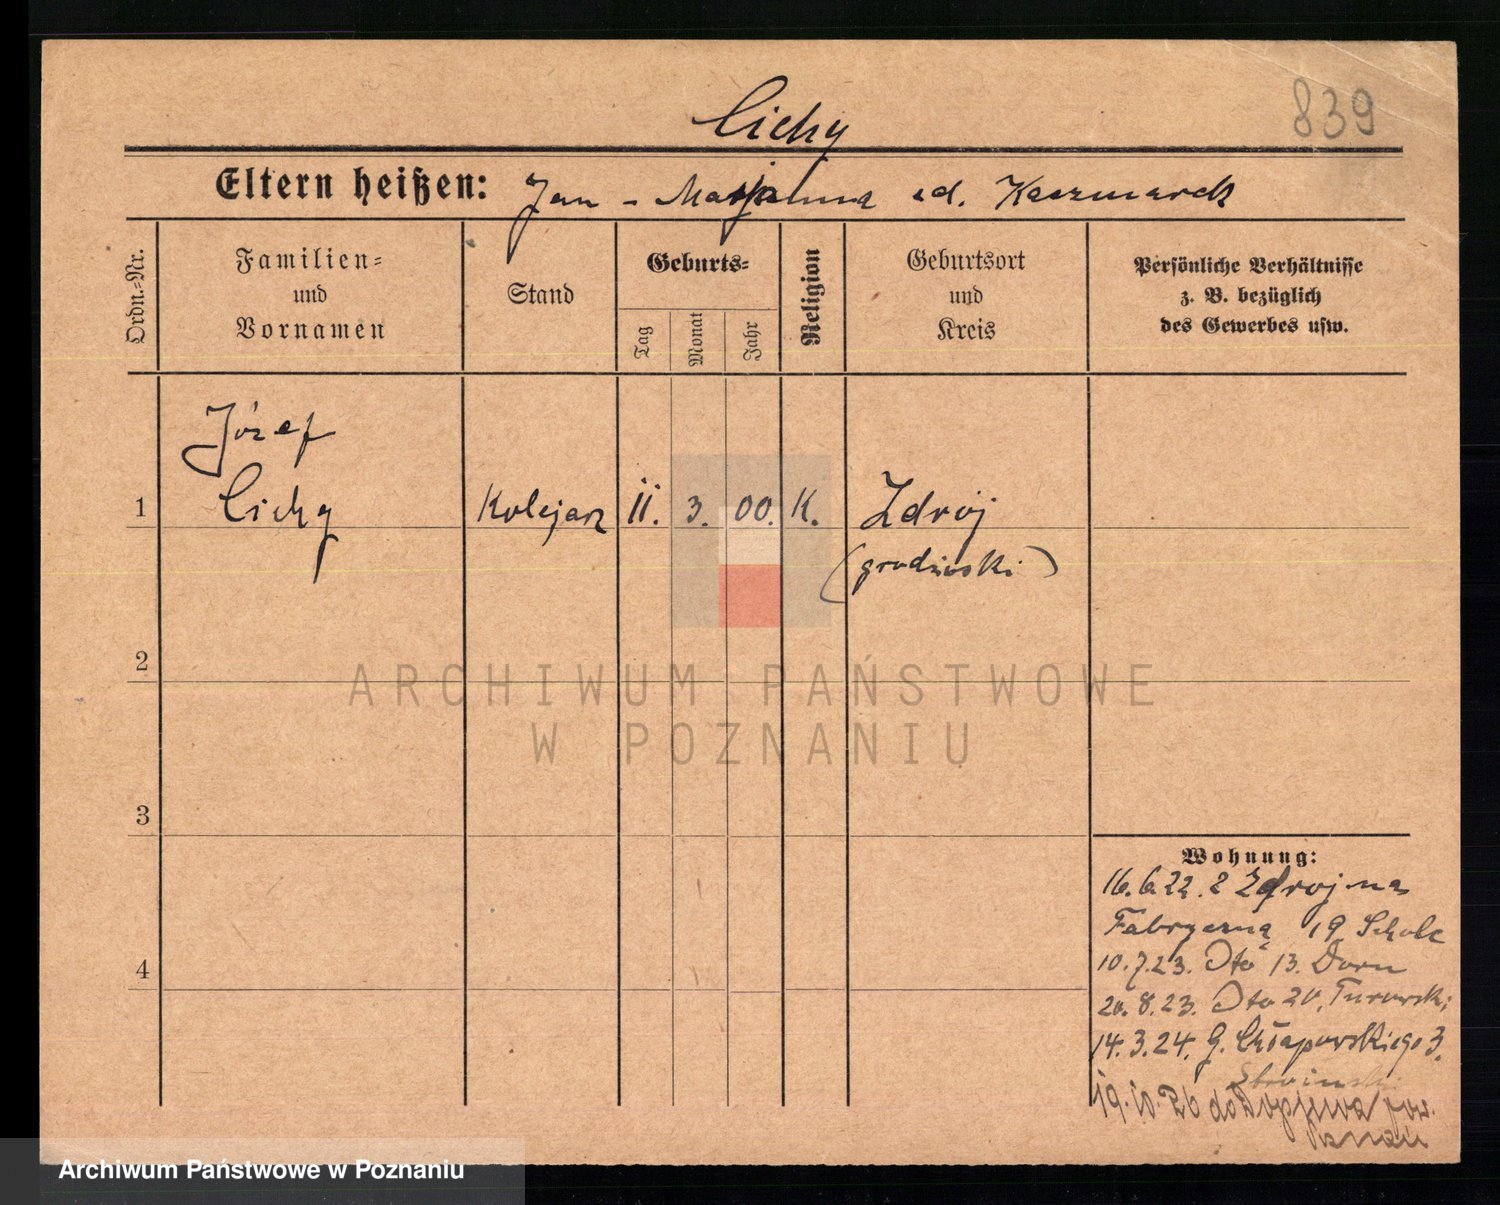 839
Cichy
Eltern heißen: Jan - Marjanna zd. Kaczmarek
Ordn.-Nr.
Familien-
und
Vornamen
Stand
Geburts-
Tag
Monat
Jahr
Religion
Geburtsort
und
Kreis
Persönliche Verhältnisse
z. B. bezüglich
des Gewerbes usw.
Józef
1 Cichy Kolejarz 11. 3. 00. K. Zdrój
(grodziski)
2
ARCHIWUM PAŃSTWOWE
W POZNANIU
3
4
Wohnung:
16.6.22. z Zdroj na
Fabryczną 19 Scholc
10.7.23. Dto 13. Dorn
20.8.23. Dto 20. Turowski
14.3.24. G. Chłapowskiego 3.
19.10.26 do
Archiwum Państwowe w Poznaniu